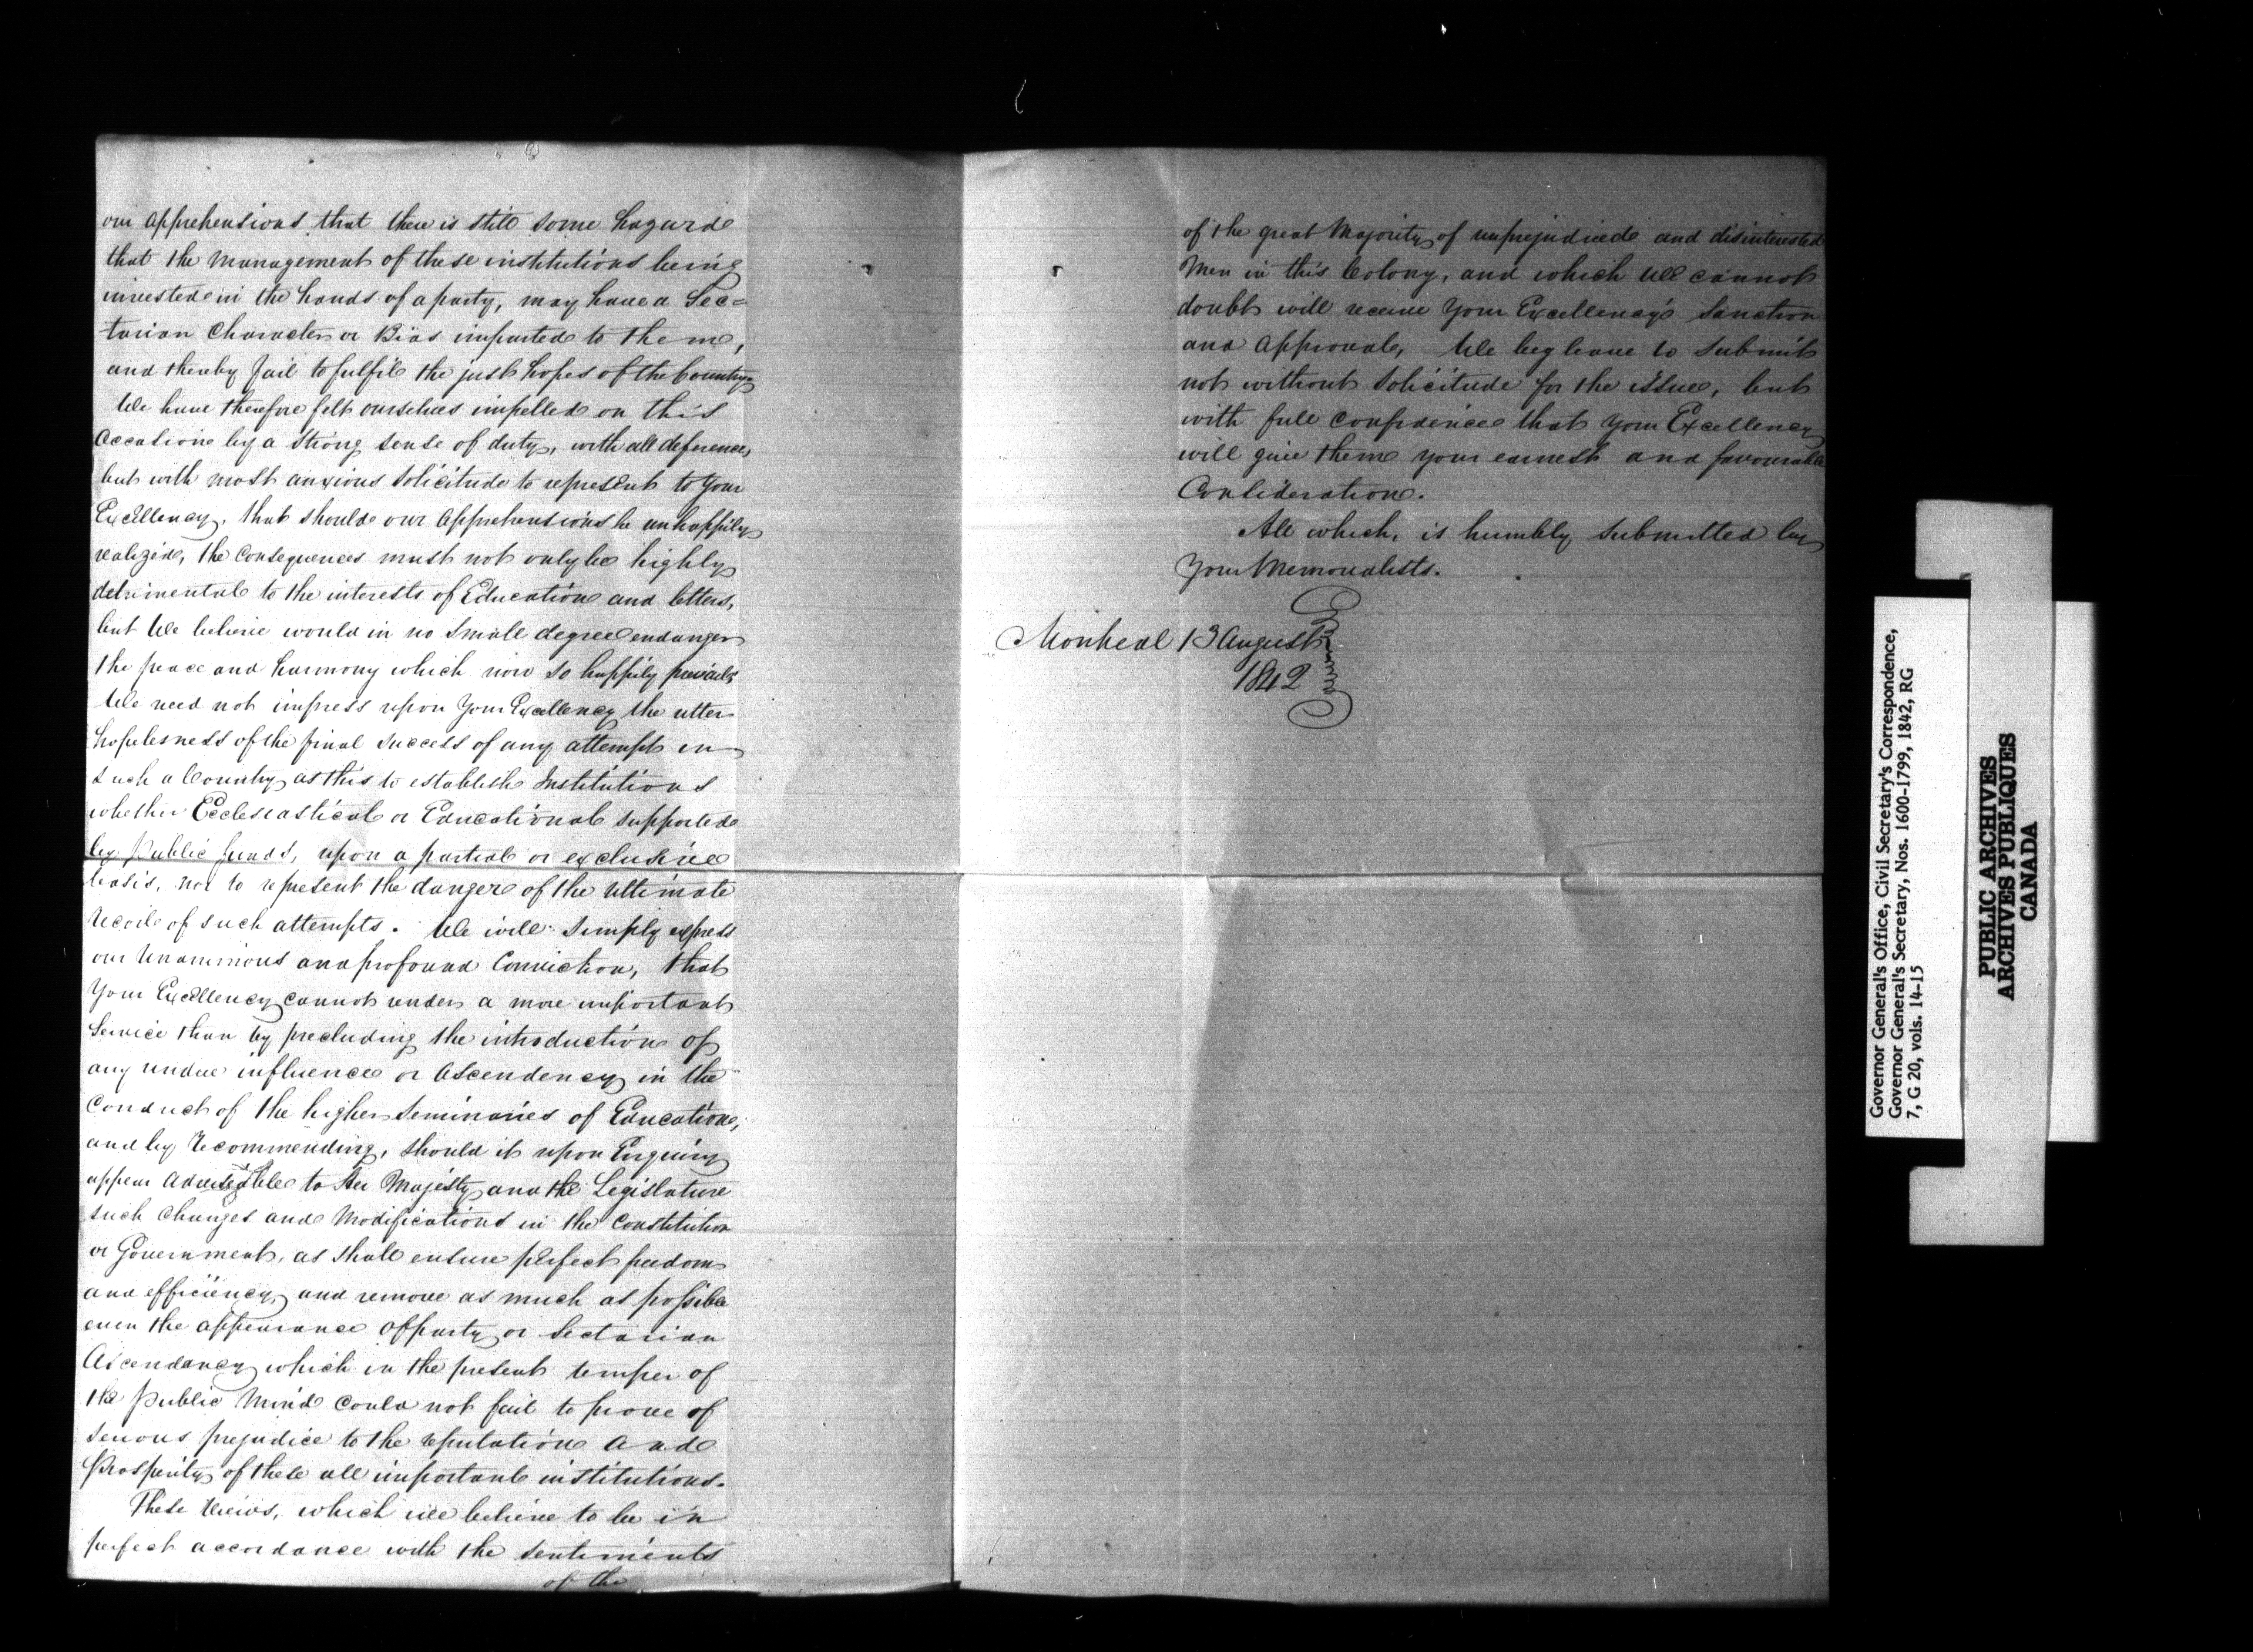 our apprehensions that there is still some hazard
that the management of these institutions being
invested in the hands of a party, may have a Sec=
tarian Character or Bias imparted to them,
and thereby fail to fulfil the just hopes of the Country
We have therefore felt ourselves impelled on this
Occasion by a strong sense of duty, with all deference,
but with most anxious solicitude to represent to Your
Excellency, that should our apprehensions be unhappily
realized, the Consequences must not only be highly
detrimental to the interests of Education and letters,
but We believe would in no small degree endanger
the peace and harmony which now so happily prevails
We need not impress upon Your Excellency the utter
hopelesness of the final success of any attempt in
such a Country as this to establish Institutions
whether Ecclesiastical or Educational supported
by Public funds, upon a partial or exclusive
basis, nor to represent the danger of the ultimate
recoil of such attempts. We will simply express
our Unanimous and profound Conviction, that
Your Excellency cannot render a more important
Service than by precluding the introduction of
any undue influence or Ascendency in the
Conduct of the higher Seminaries of Education,
and by recommending, should it upon Enquiry
appear advisable to Her Majesty and the Legislature
such Changes and Modifications in the Constitution
or Government, as shall ensure perfect freedom
and efficiency, and remove as much as possible
even the appearance of party or Sectarian
Ascendancy which in the present temper of
the public Mind could not fail to prove of
serious prejudice to the reputation and
Prosperity of these all important institutions.
These Views, which we believe to be in
perfect accordance with the sentiments
of the
of the great Majority of unprejudiced and disinterested
Men in this Colony, and which We cannot
doubt will receive Your Excellency's Sanction
and Approval, We beg leave to Submit
not without Solicitude for the issue, but
with full Confidence that Your Excellency
will give them your earnest and favourable
Consideration.
All which, is humbly submitted by
Your Memorialists.
Montreal 13 August
1842
Governor General's Office, Civil Secretary's Correspondence,
Governor General's Secretary, Nos. 1600-1799, 1842, RG
7, G 20, vols. 14-15
PUBLIC ARCHIVES
ARCHIVES PUBLIQUES
CANADA